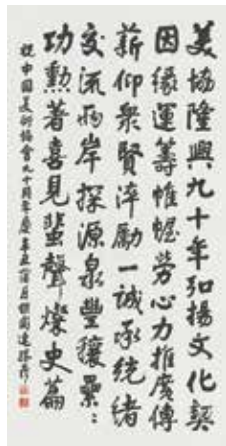 美協隆興九十年弘揚文化契
因緣運籌帷幄勞心力推廣傳
薪仰衆賢淬勵一誠承統緒
交流兩岸探源泉豐穰纍纍
功勳著喜見蜚聲燦史篇
祝中國美術協會九十周年慶